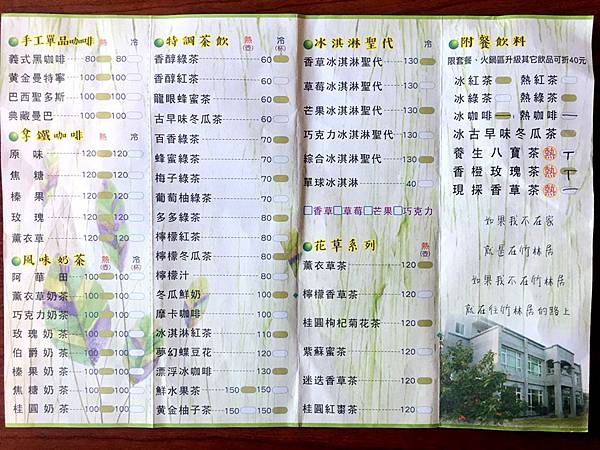 手工單品咖啡 熱 冷
義式黑咖啡 80 80
黃金曼特寧 100
巴西聖多斯 100
典藏曼巴 100
拿鐵咖啡
原味 120 120
焦糖 120 120
榛果 120 120
玫瑰 120 120
薰衣草 120 120
風味奶茶 熱(壺) 冷(杯)
阿華田 100 100
薰衣草奶茶 100 100
巧克力奶茶 100 100
玫瑰奶茶 100 100
伯爵奶茶 100 100
榛果奶茶 100 100
焦糖奶茶 100 100
桂圓奶茶 100 100
特調茶飲 熱(壺) 冷(杯)
香醇綠茶 60
香醇紅茶 60
龍眼蜂蜜茶 60
古早味冬瓜茶 60
百香綠茶 70
蜂蜜綠茶 70
梅子綠茶 70
葡萄柚綠茶 70
多多綠茶 70
檸檬紅茶 100
檸檬冬瓜茶 100
檸檬汁 100
冬瓜鮮奶 100
摩卡咖啡 100
冰淇淋紅茶 110
夢幻蝶豆花 120
漂浮冰咖啡 120
鮮水果茶 150 150
黃金柚子茶 150 150
冰淇淋聖代
香草冰淇淋聖代 130
草莓冰淇淋聖代 130
芒果冰淇淋聖代 130
巧克力冰淇淋聖代 130
綜合冰淇淋聖代 130
單球冰淇淋 40
□香草□草莓□芒果□巧克力
花草系列 熱(壺)
薰衣草茶 120
檸檬香草茶 120
桂圓枸杞菊花茶 120
紫蘇蜜茶 120
迷迭香草茶 120
桂圓紅棗茶 120
附餐飲料
限套餐、火鍋區升級其它飲品可折40元
冰紅茶 熱紅茶
冰綠茶 熱綠茶
冰咖啡 熱咖啡
冰古早味冬瓜茶
養生八寶茶 熱
香橙玫瑰茶 熱
現採香草茶 熱
如果我不在家
就是在竹林居
如果我不在竹林居
就在往竹林居的路上